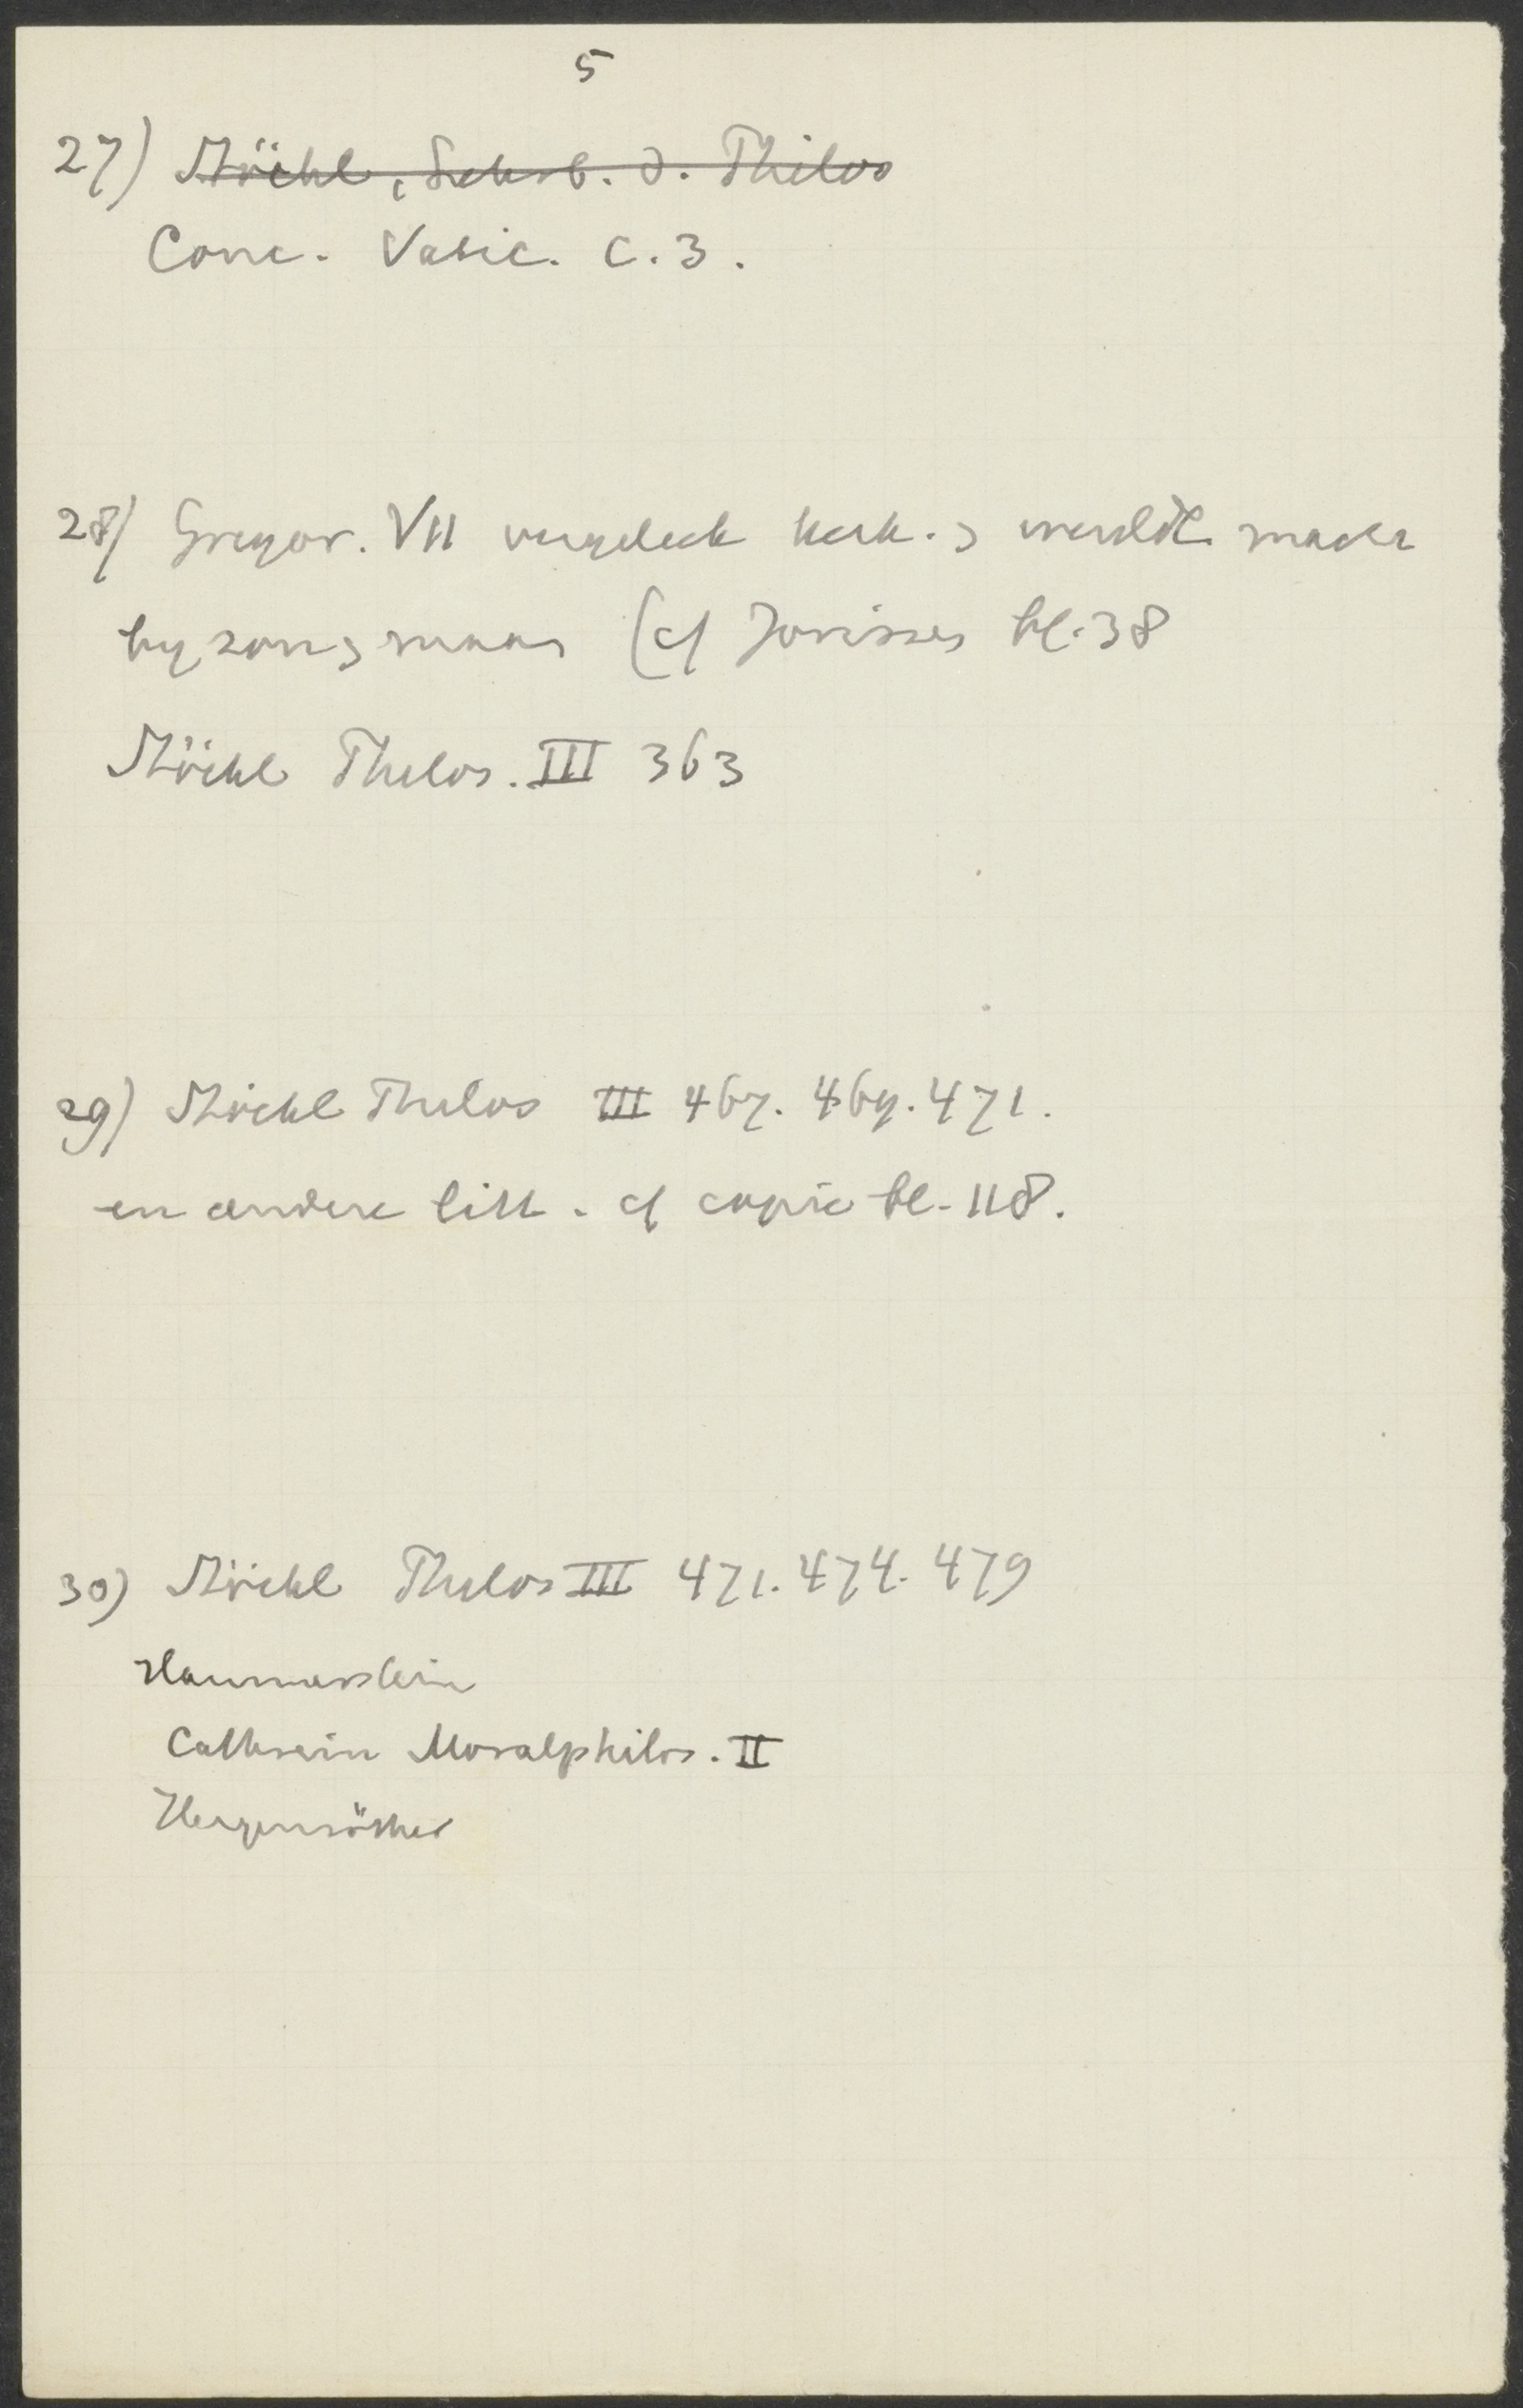 5
27) Stöckl, Lehrb. d. Philos
Conc. Vatic. c. 3.
28) Gregor. VII vergeleek kerk. > wereldl. macht
by zon > maan (cf Jorissen bl. 38
Stöckl Philos. III 363
29) Stöckl Philos III 467. 469. 471.
en andere litt. cf copie bl. 118.
30) Stöckl Philos III 471. 474. 479
Hammerstein
Cathrein Moralphilos. II
Hergenröther